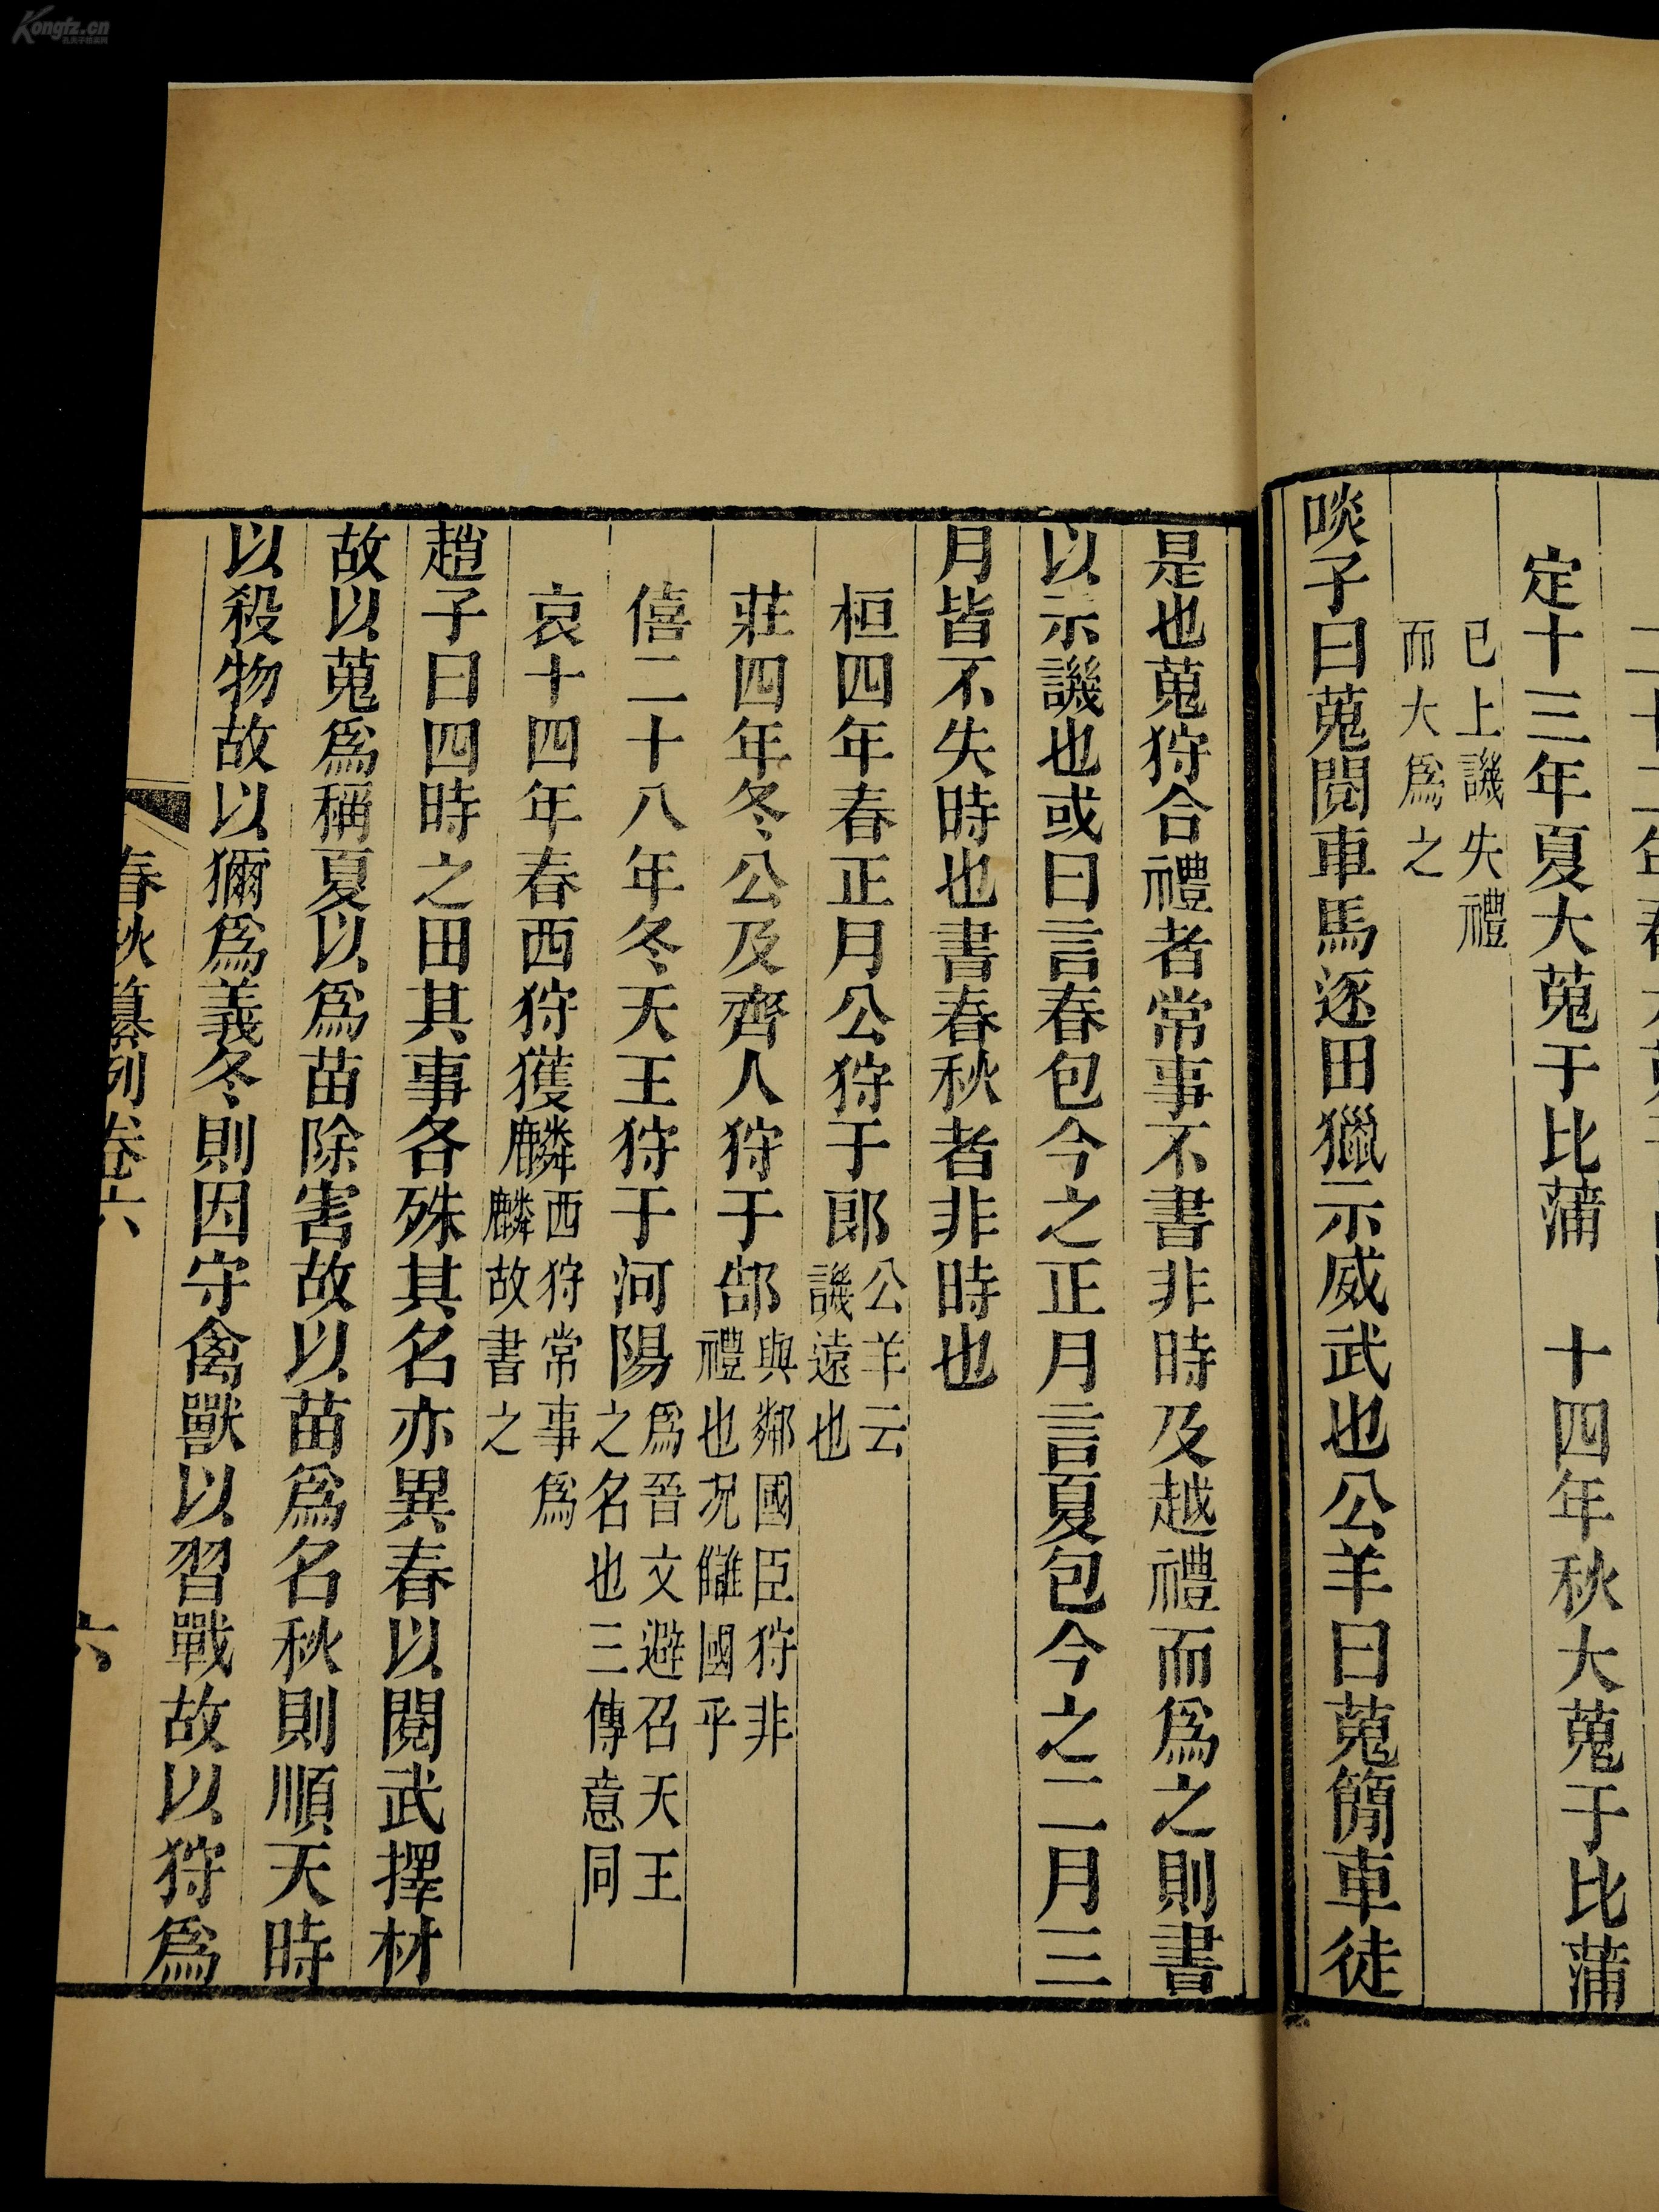 定十三年夏大蒐于比蒲　十四年秋大蒐于比蒲
已上譏失禮
而大爲之
啖子曰蒐閱車馬逐田獵示威武也公羊曰蒐簡車徒
是也蒐狩合禮者常事不書非時及越禮而爲之則書
以示譏也或曰言春包今之正月言夏包今之二月三
月皆不失時也書春秋者非時也
桓四年春正月公狩于郎公羊云
譏遠也
莊四年冬公及齊人狩于郜與鄰國臣狩非
禮也況讎國乎
僖二十八年冬天王狩于河陽爲晉文避召天王
之名也三傳意同
哀十四年春西狩獲麟西狩常事爲
麟故書之
趙子曰四時之田其事各殊其名亦異春以閱武擇材
故以蒐爲稱夏以爲苗除害故以苗爲名秋則順天時
以殺物故以獮爲義冬則因守禽獸以習戰故以狩爲
春秋纂例卷六
六
Kongfz.cn